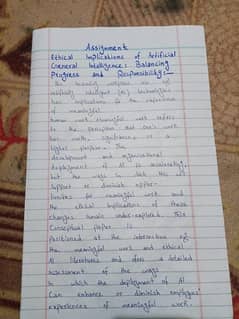 Assignment
Ethical Implications of Artificial
General Intelligence: Balancing
Progress and Responsibility:-
The increasing
artificially intelligent (AI) technologies
has implications to the experience
meaningful
human work. Meaningful work refers
to the perception that one's work
has worth, significance, or a
higher purpose. The
development and organisational
deployment of AI is accelerating,
but the ways in which this
support or diminish oppor-
tunities for meaningful work and
the ethical implications of these
changes remain under-explored. This
Conceptual paper is
positioned at the intersection of
the meaningful work and ethical
AI literatures and offers a detailed
assessment of the ways
in which the deployment of AI
Can enhance or diminish employees'
experiences of meaningful work.